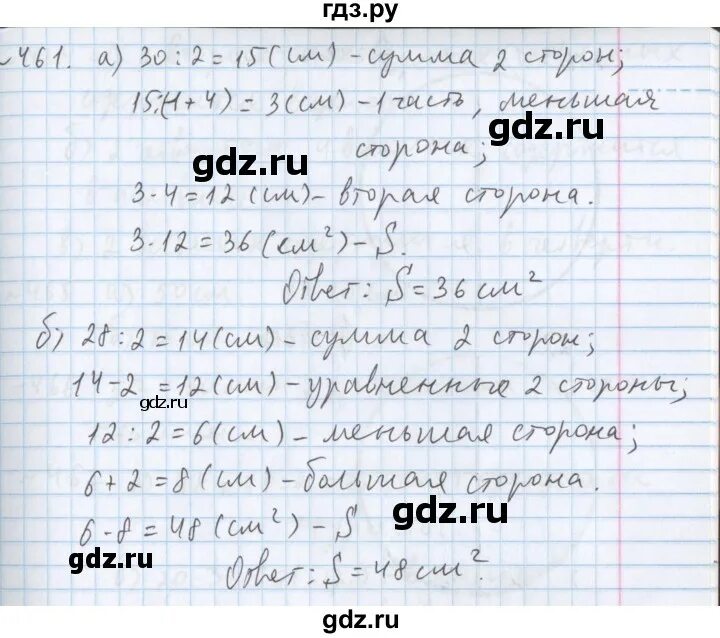 гдз.ру
461. а) 30 : 2 = 15 (см) - сумма 2 сторон;
15:(1+4) = 3(см) - 1 часть, меньшая
gdz.ru
gdz.ru
сторона;
3·4=12 (см) - вторая сторона.
3·12 = 36 (см²) - S.
Ответ: S = 36 см²
б) 28 : 2 = 14 (см) - сумма 2 сторон;
14-2 = 12 (см) - уравненные 2 стороны;
gdz.ru
12 : 2 = 6 (см) - меньшая сторона;
6+2 = 8 (см) - большая сторона.
gdz.ru
6·8 = 48 (см²) - S
gdz.ru
Ответ: S = 48 см².
gdz.ru